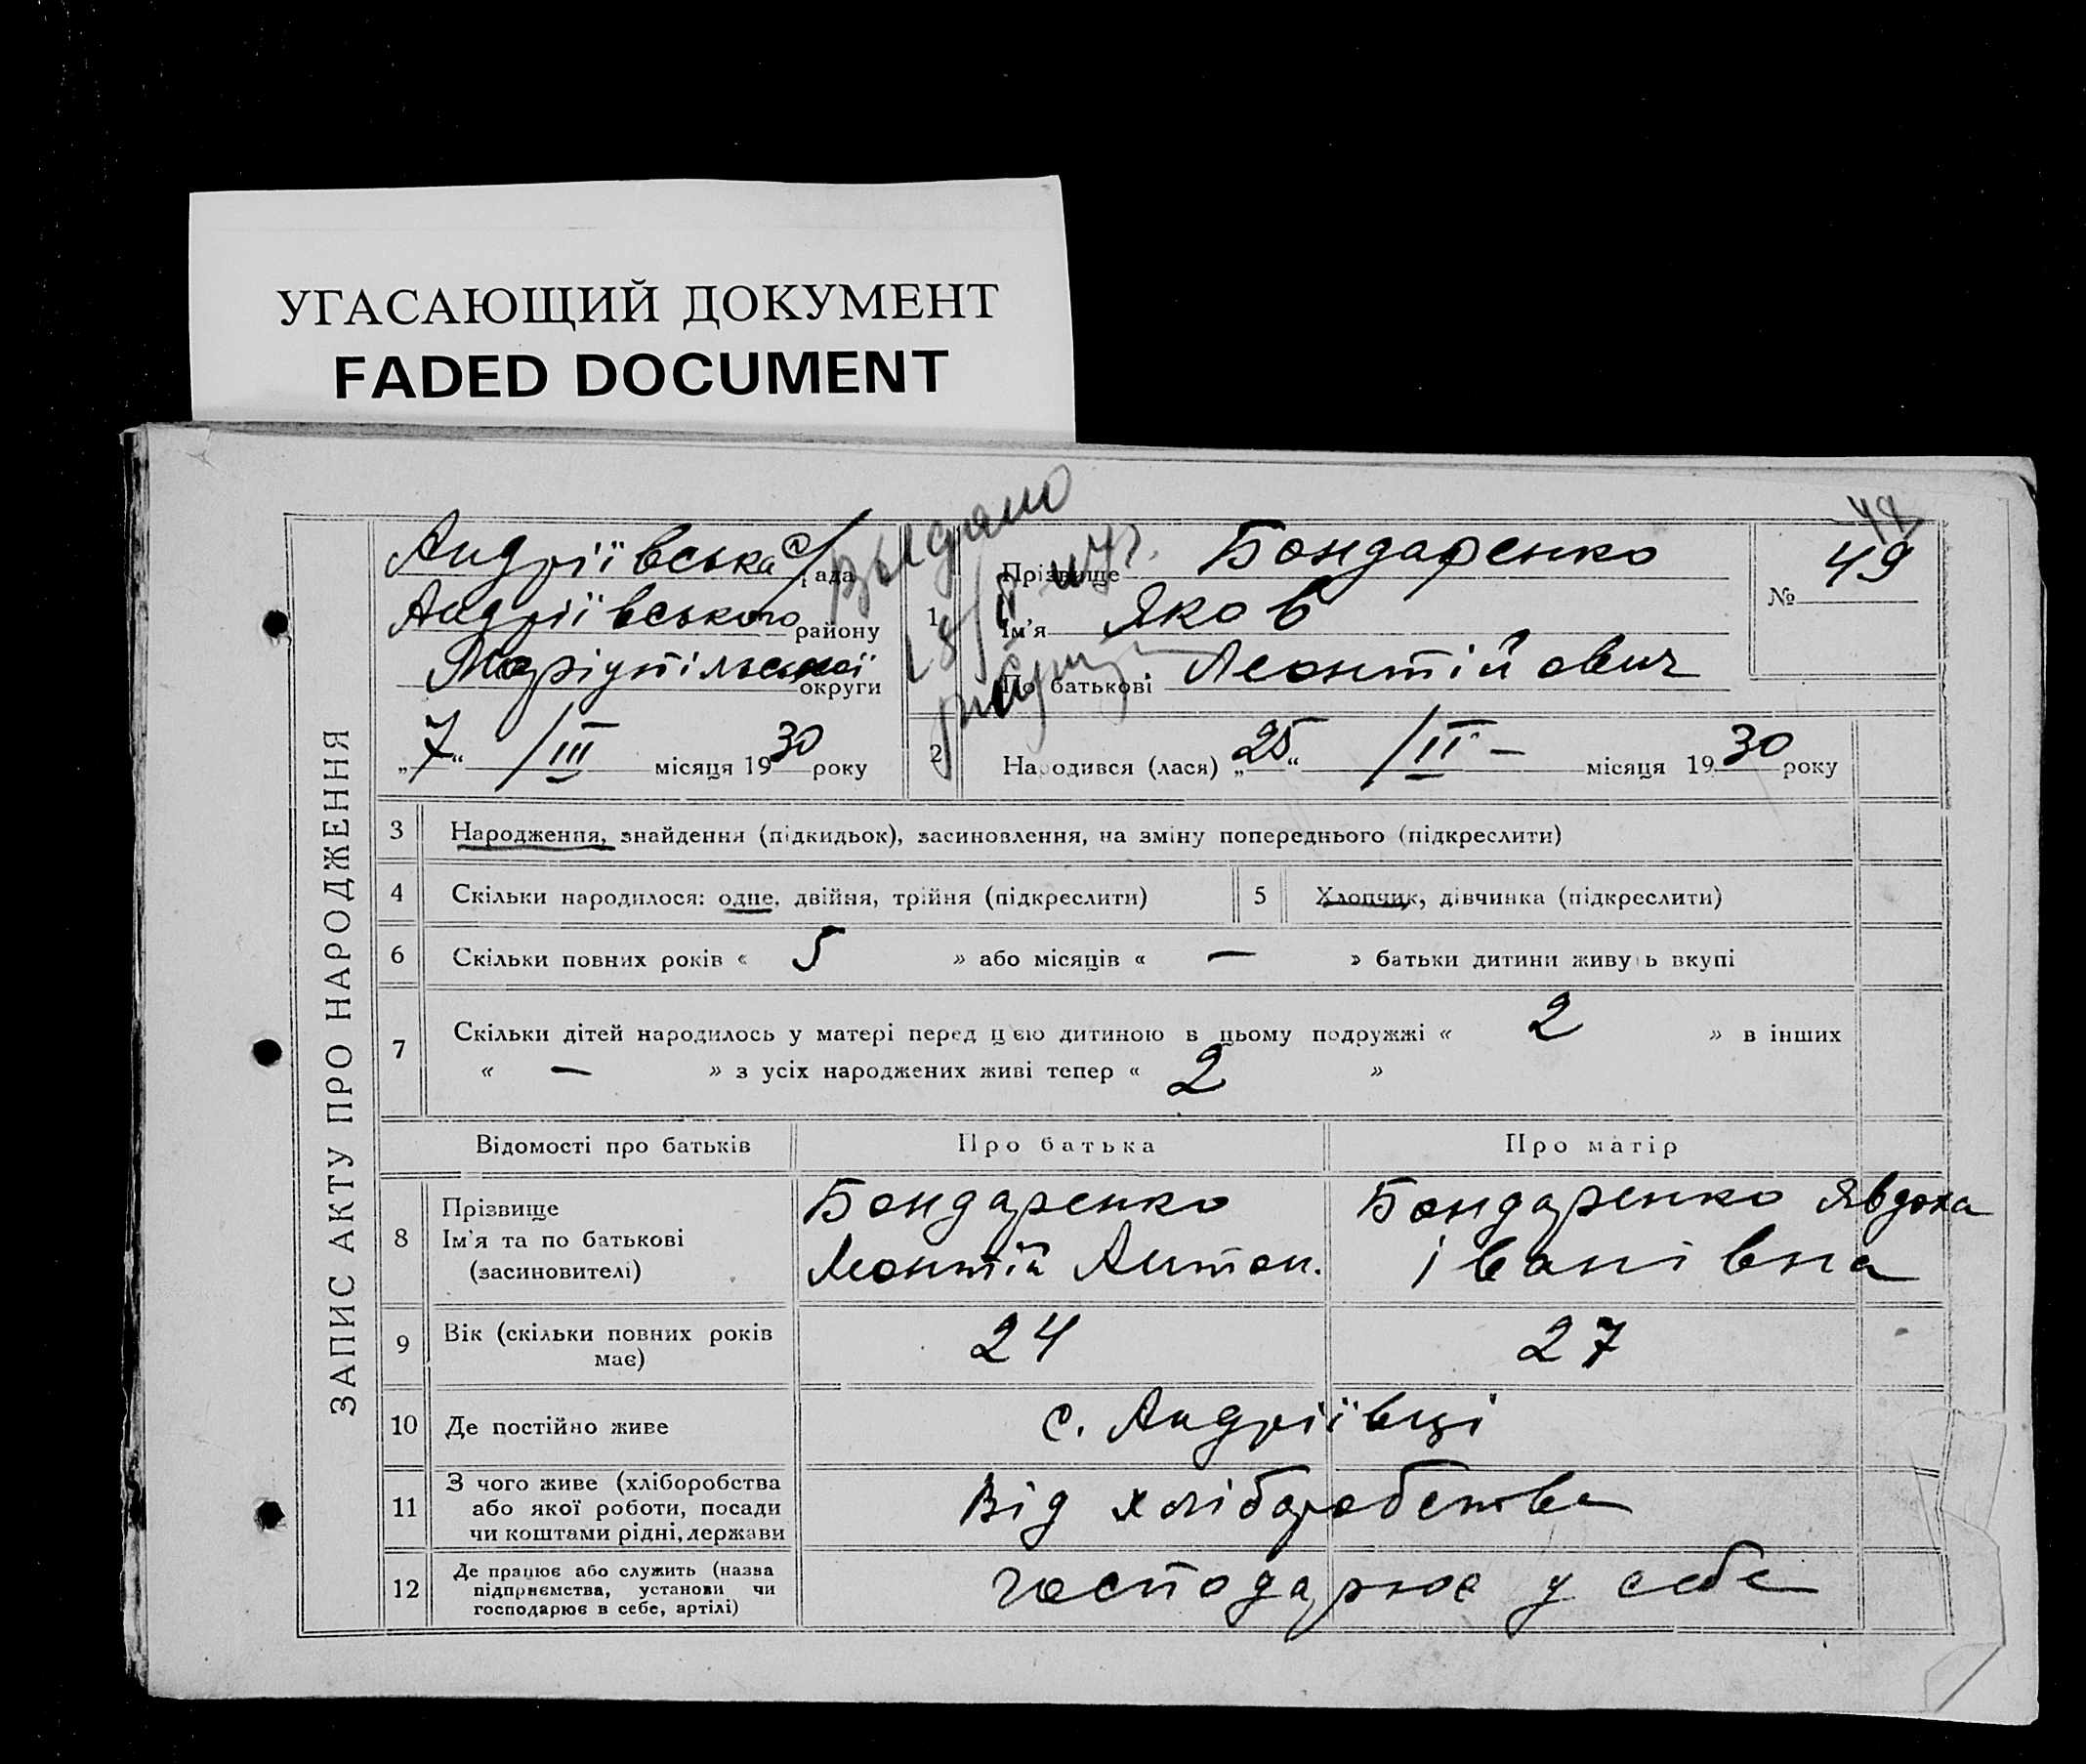 УГАСАЮЩИЙ ДОКУМЕНТ
FADED DOCUMENT
ЗАПИС АКТУ ПРО НАРОДЖЕННЯ
Андріївська с/рада
Андріївського району
Маріупільської округи
„7“ /III місяця 1930 року
Выдано
1 Прізвище Бондаренко
Ім'я Яков
По батькові Леонтійович
№ 49
48
2 Народився (лася) „25“ /II – місяця 1930 року
3 Народження, знайдення (підкидьок), засиновлення, на зміну попереднього (підкреслити)
4 Скільки народилося: одне, двійня, трійня (підкреслити)
5 Хлопчик, дівчинка (підкреслити)
6 Скільки повних років « 5 » або місяців « — » батьки дитини живуть вкупі
7 Скільки дітей народилось у матері перед цією дитиною в цьому подружжі « 2 » в інших
« — » з усіх народжених живі тепер « 2 »
Відомості про батьків Про батька Про матір
8 Прізвище
Ім'я та по батькові
(засиновителі)
Бондаренко
Леонтій Антон.
Бондаренко Явдоха
Іванівна
9 Вік (скільки повних років
має)
24 27
10 Де постійно живе с. Андріївці
11 З чого живе (хліборобства
або якої роботи, посади
чи коштами рідні, держави
Від хліборобства
12 Де працює або служить (назва
підприємства, установи чи
господарює в себе, артілі)
господарює у себе